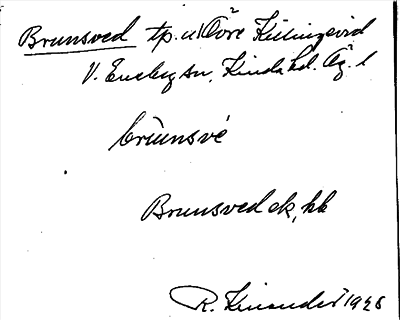 Brunsved tp. u. Övre Kölingsvid
V. Eneby sn, Kinda hd. Ög. l
brúnsvé
Brunsved ek, hb
R. Kinander 1928